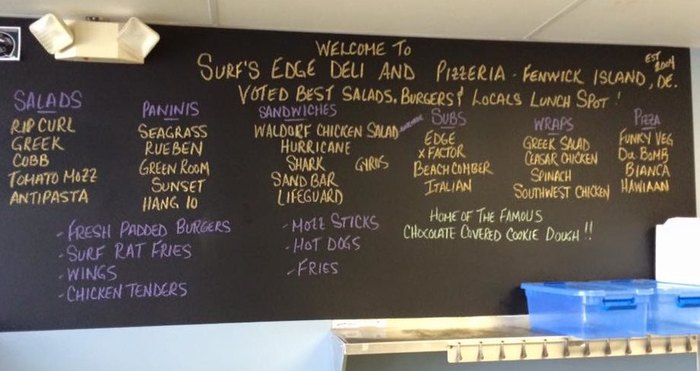 WELCOME TO
SURF'S EDGE DELI AND PIZZERIA - FENWICK ISLAND, DE.
EST 2004
VOTED BEST SALADS, BURGERS & LOCALS LUNCH SPOT!
SALADS
RIP CURL
GREEK
COBB
TOMATO MOZZ
ANTIPASTA
PANINIS
SEAGRASS
RUEBEN
GREEN ROOM
SUNSET
HANG 10
SANDWICHES
WALDORF CHICKEN SALAD
HURRICANE
SHARK
GYROS
SAND BAR
LIFEGUARD
SUBS
EDGE
X FACTOR
BEACH COMBER
ITALIAN
WRAPS
GREEK SALAD
CEASAR CHICKEN
SPINACH
SOUTHWEST CHICKEN
PIZZA
FUNKY VEG
DA BOMB
BIANCA
HAWIIAN
- FRESH PADDED BURGERS
- SURF RAT FRIES
- WINGS
- CHICKEN TENDERS
- MOZZ STICKS
- HOT DOGS
- FRIES
HOME OF THE FAMOUS
CHOCOLATE COVERED COOKIE DOUGH!!